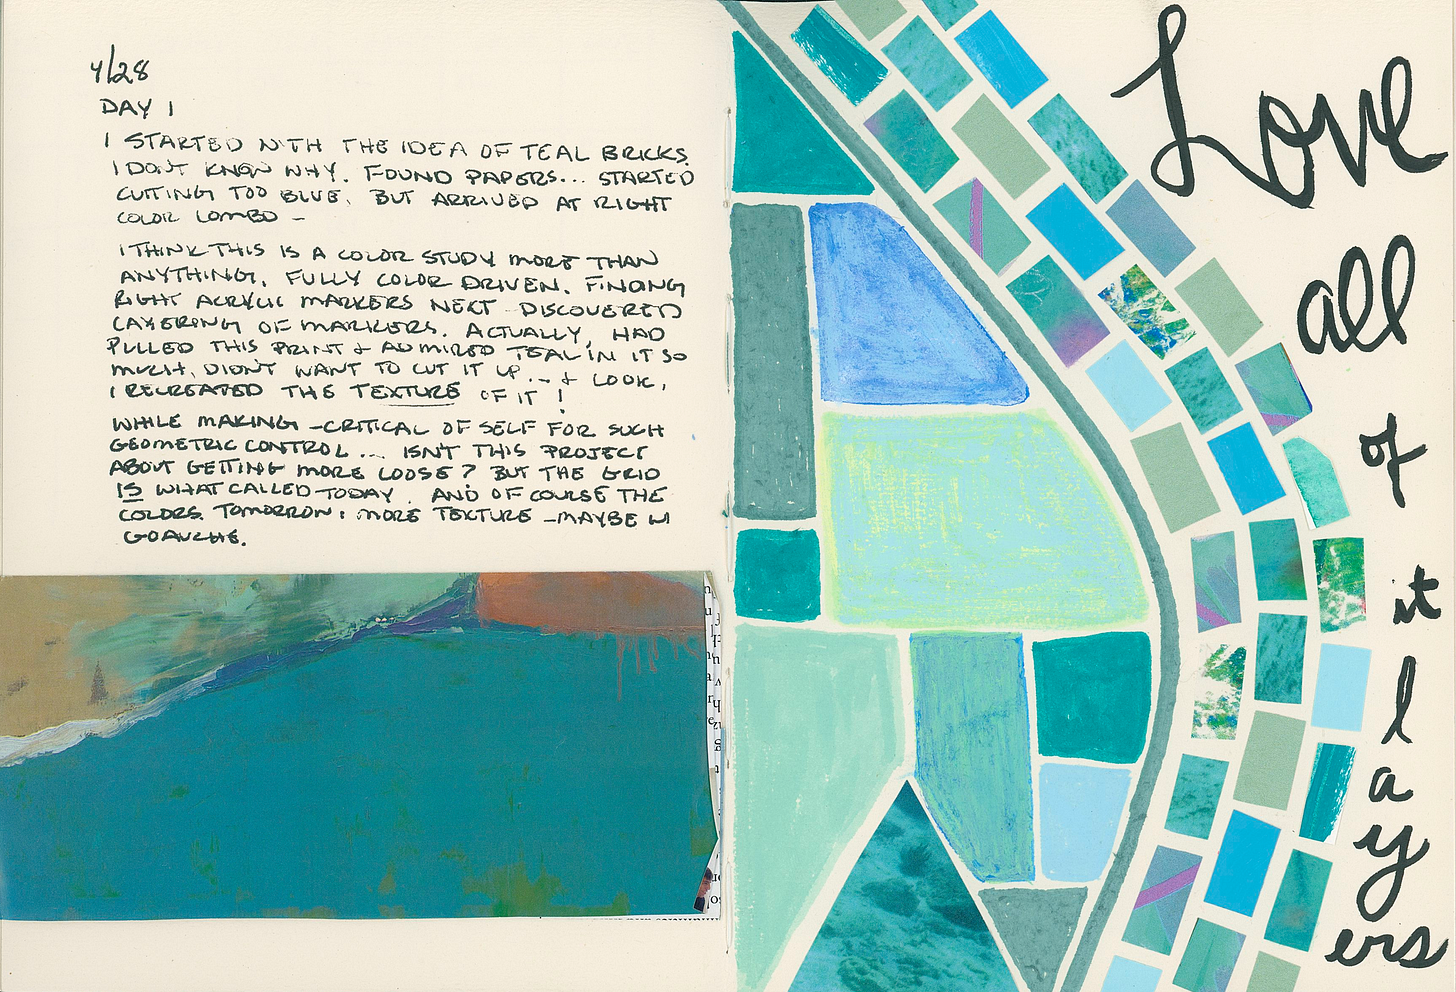 4/28
DAY 1
I STARTED WITH THE IDEA OF TEAL BRICKS.
I DON'T KNOW WHY. FOUND PAPERS... STARTED
CUTTING TOO BLUE. BUT ARRIVED AT RIGHT
COLOR COMBO -
I THINK THIS IS A COLOR STUDY MORE THAN
ANYTHING. FULLY COLOR DRIVEN. FINDING
RIGHT ACRYLIC MARKERS NEXT - DISCOVERED
LAYERING OF MARKERS. ACTUALLY, HAD
PULLED THIS PRINT + ADMIRED TEAL IN IT SO
MUCH, DIDN'T WANT TO CUT IT UP... + LOOK,
I RECREATED THE TEXTURE OF IT!
WHILE MAKING - CRITICAL OF SELF FOR SUCH
GEOMETRIC CONTROL... ISN'T THIS PROJECT
ABOUT GETTING MORE LOOSE? BUT THE GRID
IS WHAT CALLED TODAY. AND OF COURSE THE
COLORS. TOMORROW: MORE TEXTURE - MAYBE W/
GOAUCHE.
Love
all
of
it
l
a
y
ers